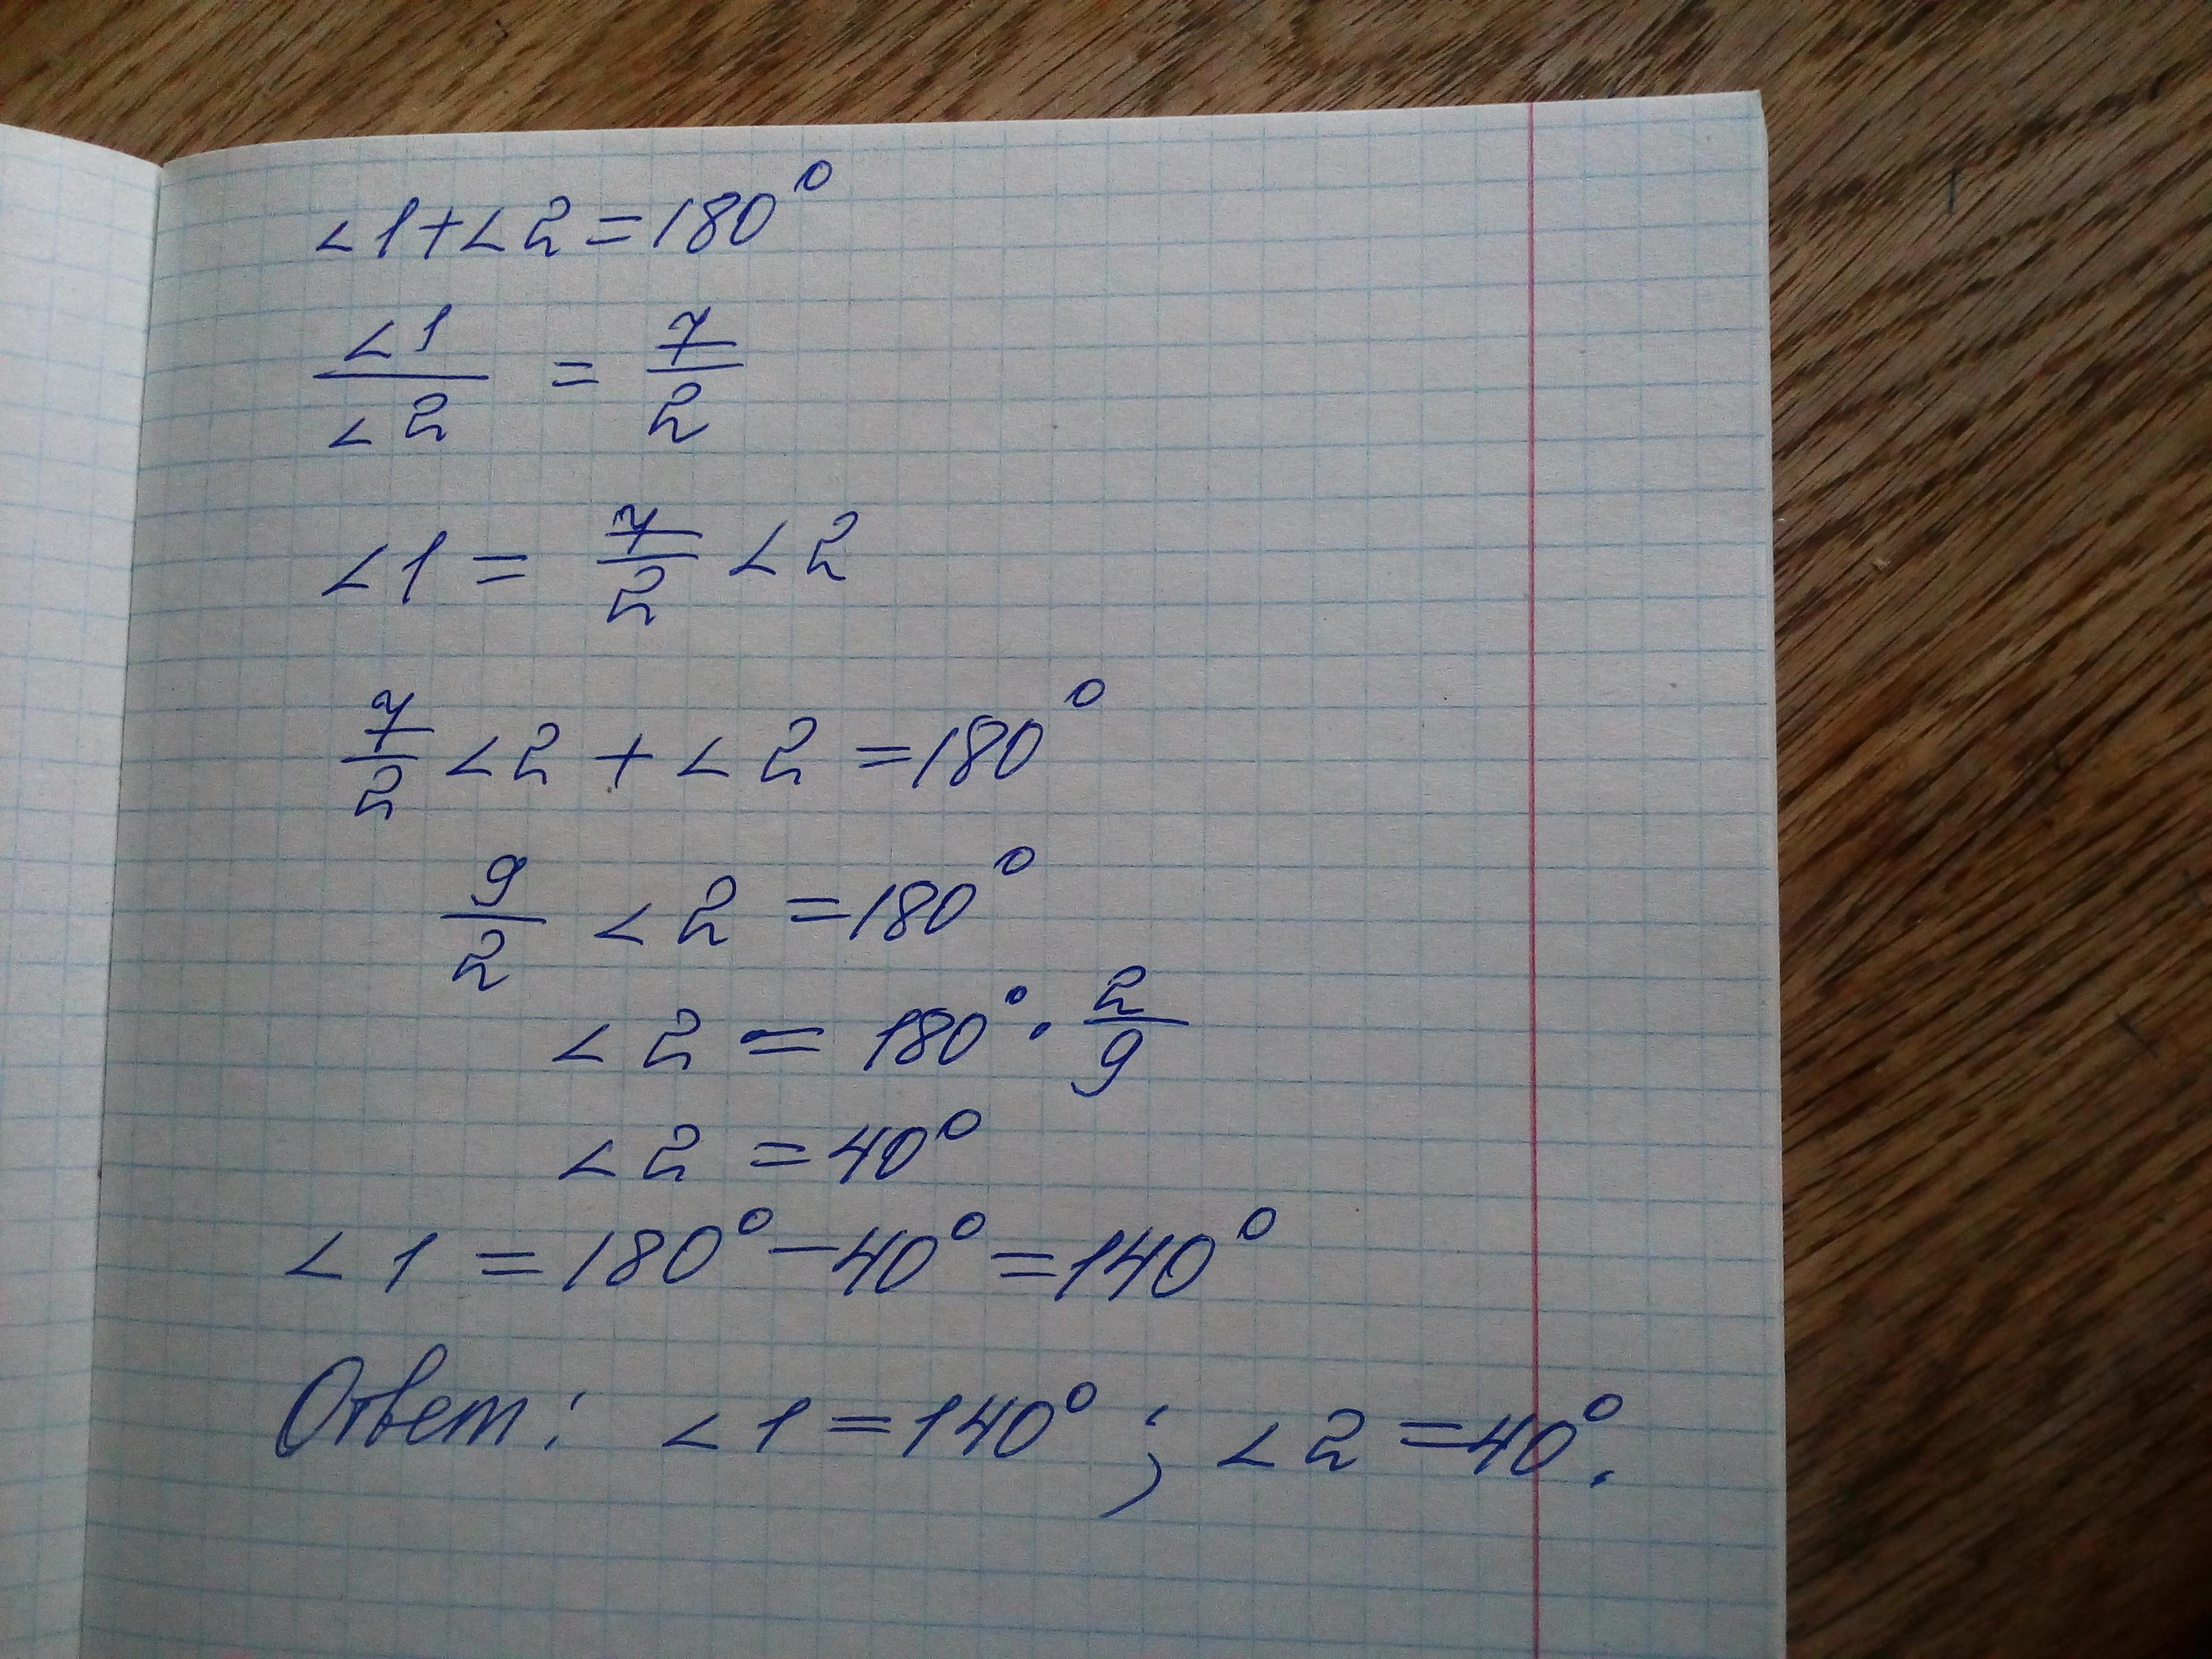 ∠1+∠2=180°
∠1/∠2 = 7/2
∠1 = 7/2 ∠2
7/2 ∠2 + ∠2 =180°
9/2 ∠2 =180°
∠2 = 180° · 2/9
∠2 =40°
∠1 =180°−40°=140°
Ответ: ∠1=140°; ∠2=40°.